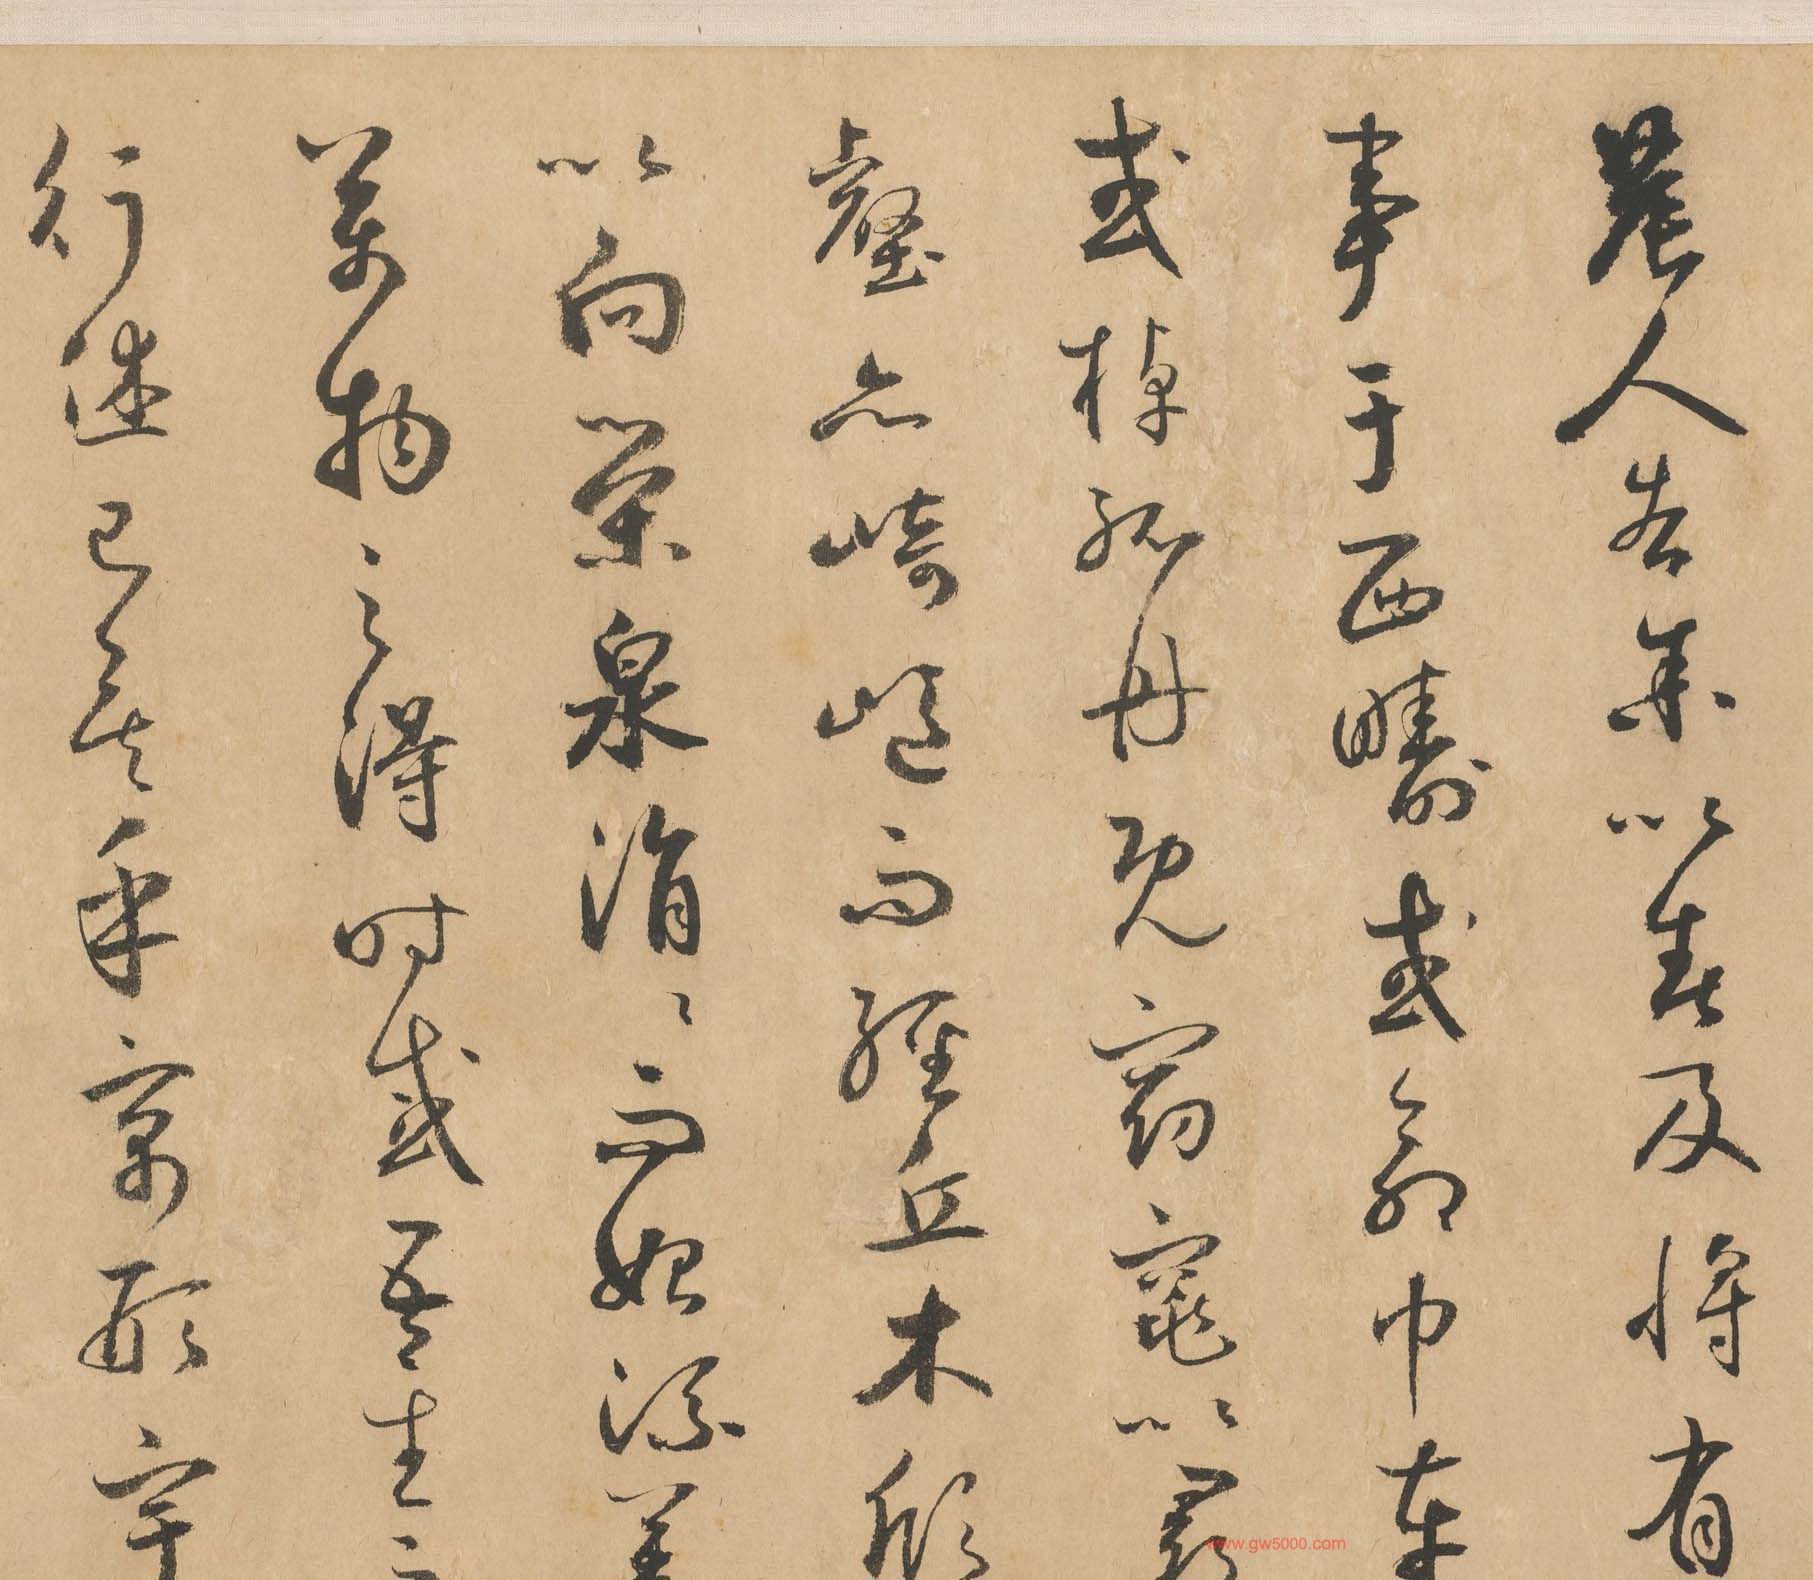 農人告余以春及将有
事于西疇或命巾車
或棹孤舟既窈窕以尋
壑亦崎嶇而經丘木欣
以向榮泉涓〻而始流羨
萬物之得时感吾生之
行休已矣乎寓形宇
www.gw5000.com